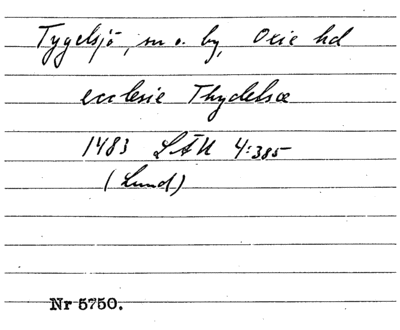 Tygelsjö, sn o. by, Oxie hd
ecclesie Thydelsæ
1483 LÄU 4:385
(Lund)
Nr 5750.